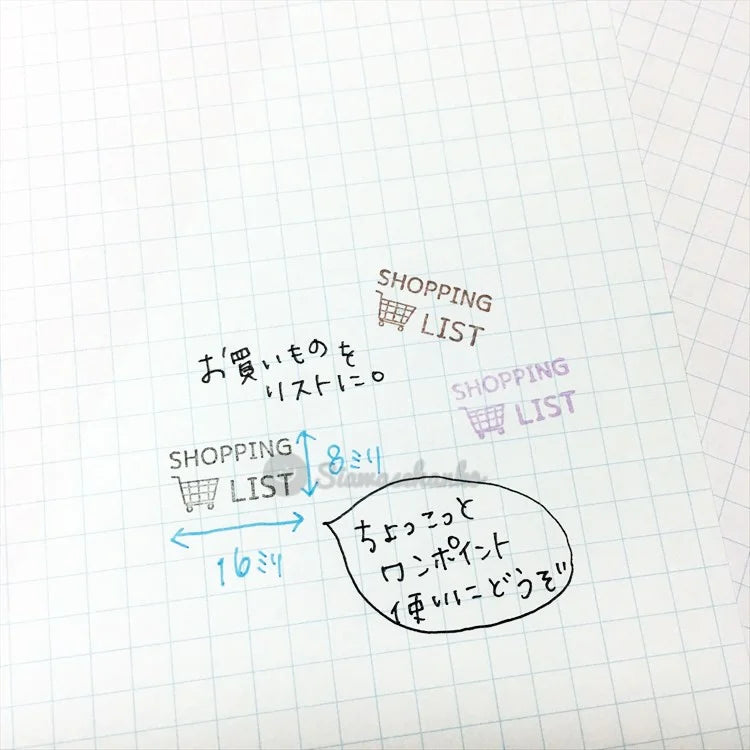 SHOPPING
LIST
お買いものを
リストに。
SHOPPING
LIST
SHOPPING
LIST
8ミリ
16ミリ
ちょこっと
ワンポイント
使いにどうぞ